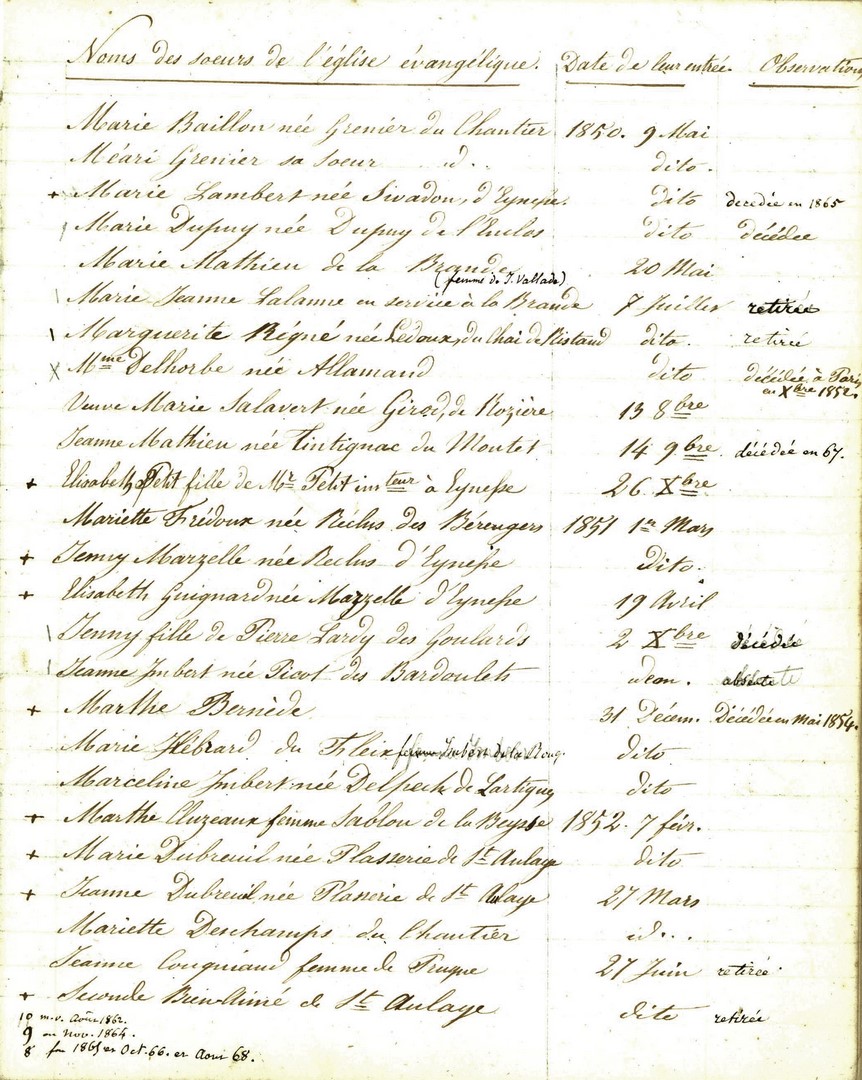 Noms des soeurs de l'église évangélique. Date de leur entrée. Observations
Marie Baillon née Grenier du Chantier 1850. 9 Mai
Méari Grenier sa soeur id.. dito.
+ Marie Lambert née Sivadon, d'Eynesse. dito décédée en 1865
Marie Dupuy née Dupuy de l'Enclos dito décédée
Marie Mathieu de la Brande 20 Mai
(femme de J. Vallade)
\ Marie Jeanne Lalanne en service à la Brande 7 Juillet retirée
\ Marguerite Régné née Ledoux, du Chai de Ristaud dito. retirée
X Mme Delhorbe née Allamand dito décédée à Paris
en Xbre 1852.
Veuve Marie Salavert née Girod, de Rozière 13 8bre
Jeanne Mathieu née Tintignac du Moutet 14 9bre. décédée en 67.
+ Elisabeth Petit fille de Mr Petit insteur à Eynesse 26 Xbre
Mariette Frédoux née Réclus des Bérengers 1851 1er Mars
+ Jenny Marzelle née Reclus d'Eynesse dito.
+ Elisabeth Guignard née Marzelle d'Eynesse 19 Avril
\ Jenny fille de Pierre Lardy des Goulards 2 Xbre décédée
\ Jeanne Imbert née Picot des Bardoulets idem. absente
+ Marthe Bernède 31 Décem. Décédée en mai 1854.
Marie Hébrard du Fleix femme Imbert de la Roug. dito
Marceline Imbert née Delpech de Lartigue dito
+ Marthe Auzeaux femme Sablou de la Beysse 1852. 7 fév.
+ Marie Dubreuil née Plasserie de St Aulaye dito
+ Jeanne Dubreuil née Plasserie de St Aulaye 27 Mars
Mariette Deschamps du Chantier id...
Jeanne Cougniaud femme de Pruque 27 Juin retirée
+ Seconde Bien-Aimé de St Aulaye dito retirée
10 m.v. Août 1862.
9 en Nov. 1864.
8 fn 1865 en Oct. 66. en Avri 68.